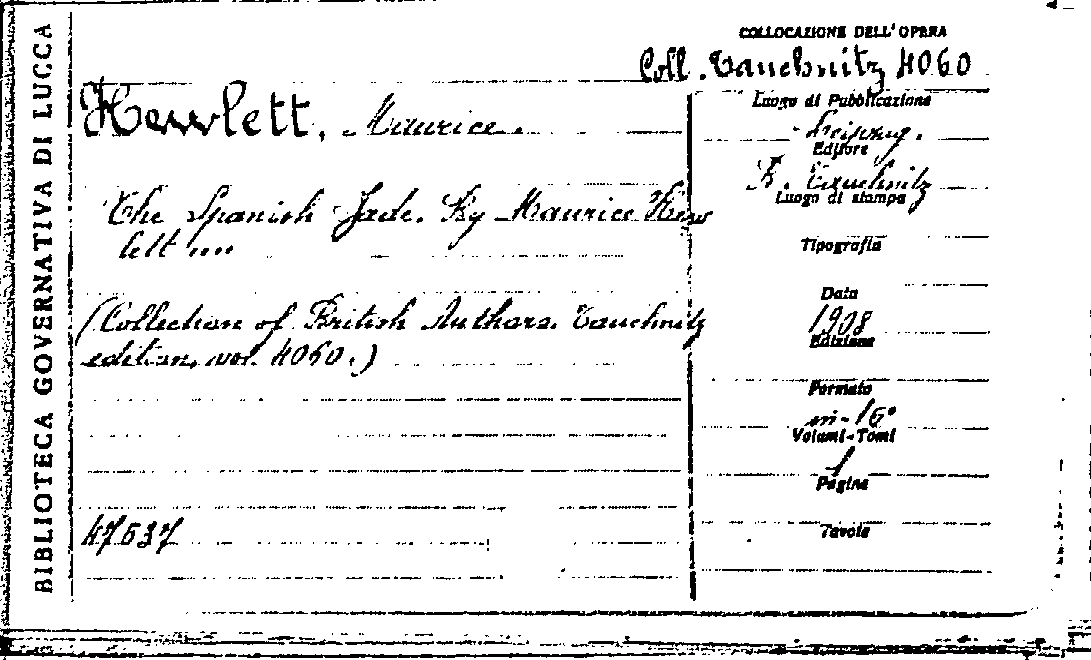 BIBLIOTECA GOVERNATIVA DI LUCCA
COLLOCAZIONE DELL'OPERA
Coll. Tauchnitz 4060
Hewlett, Maurice.
The Spanish Jade. By Maurice Hew
lett ...
(Collection of British Authors. Tauchnitz
edition, vol. 4060.)
47537
Luogo di Pubblicazione
Leipzig.
Editore
B. Tauchnitz
Luogo di stampa
Tipografia
Data
1908
Edizione
Formato
in-16°
Volumi-Tomi
1
Pagine
Tavole